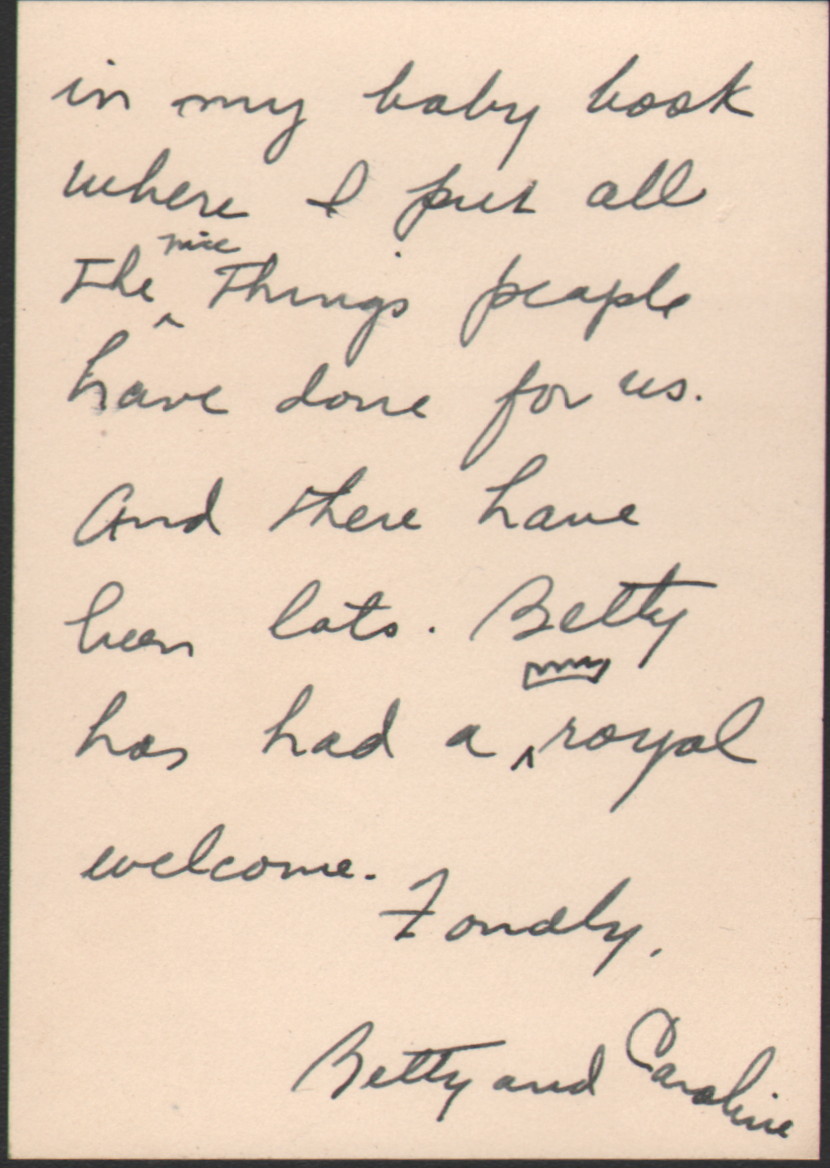 in my baby book
where I put all
the nice things people
have done for us.
And there have
been lots. Betty
has had a royal
welcome.
Fondly,
Betty and Caroline